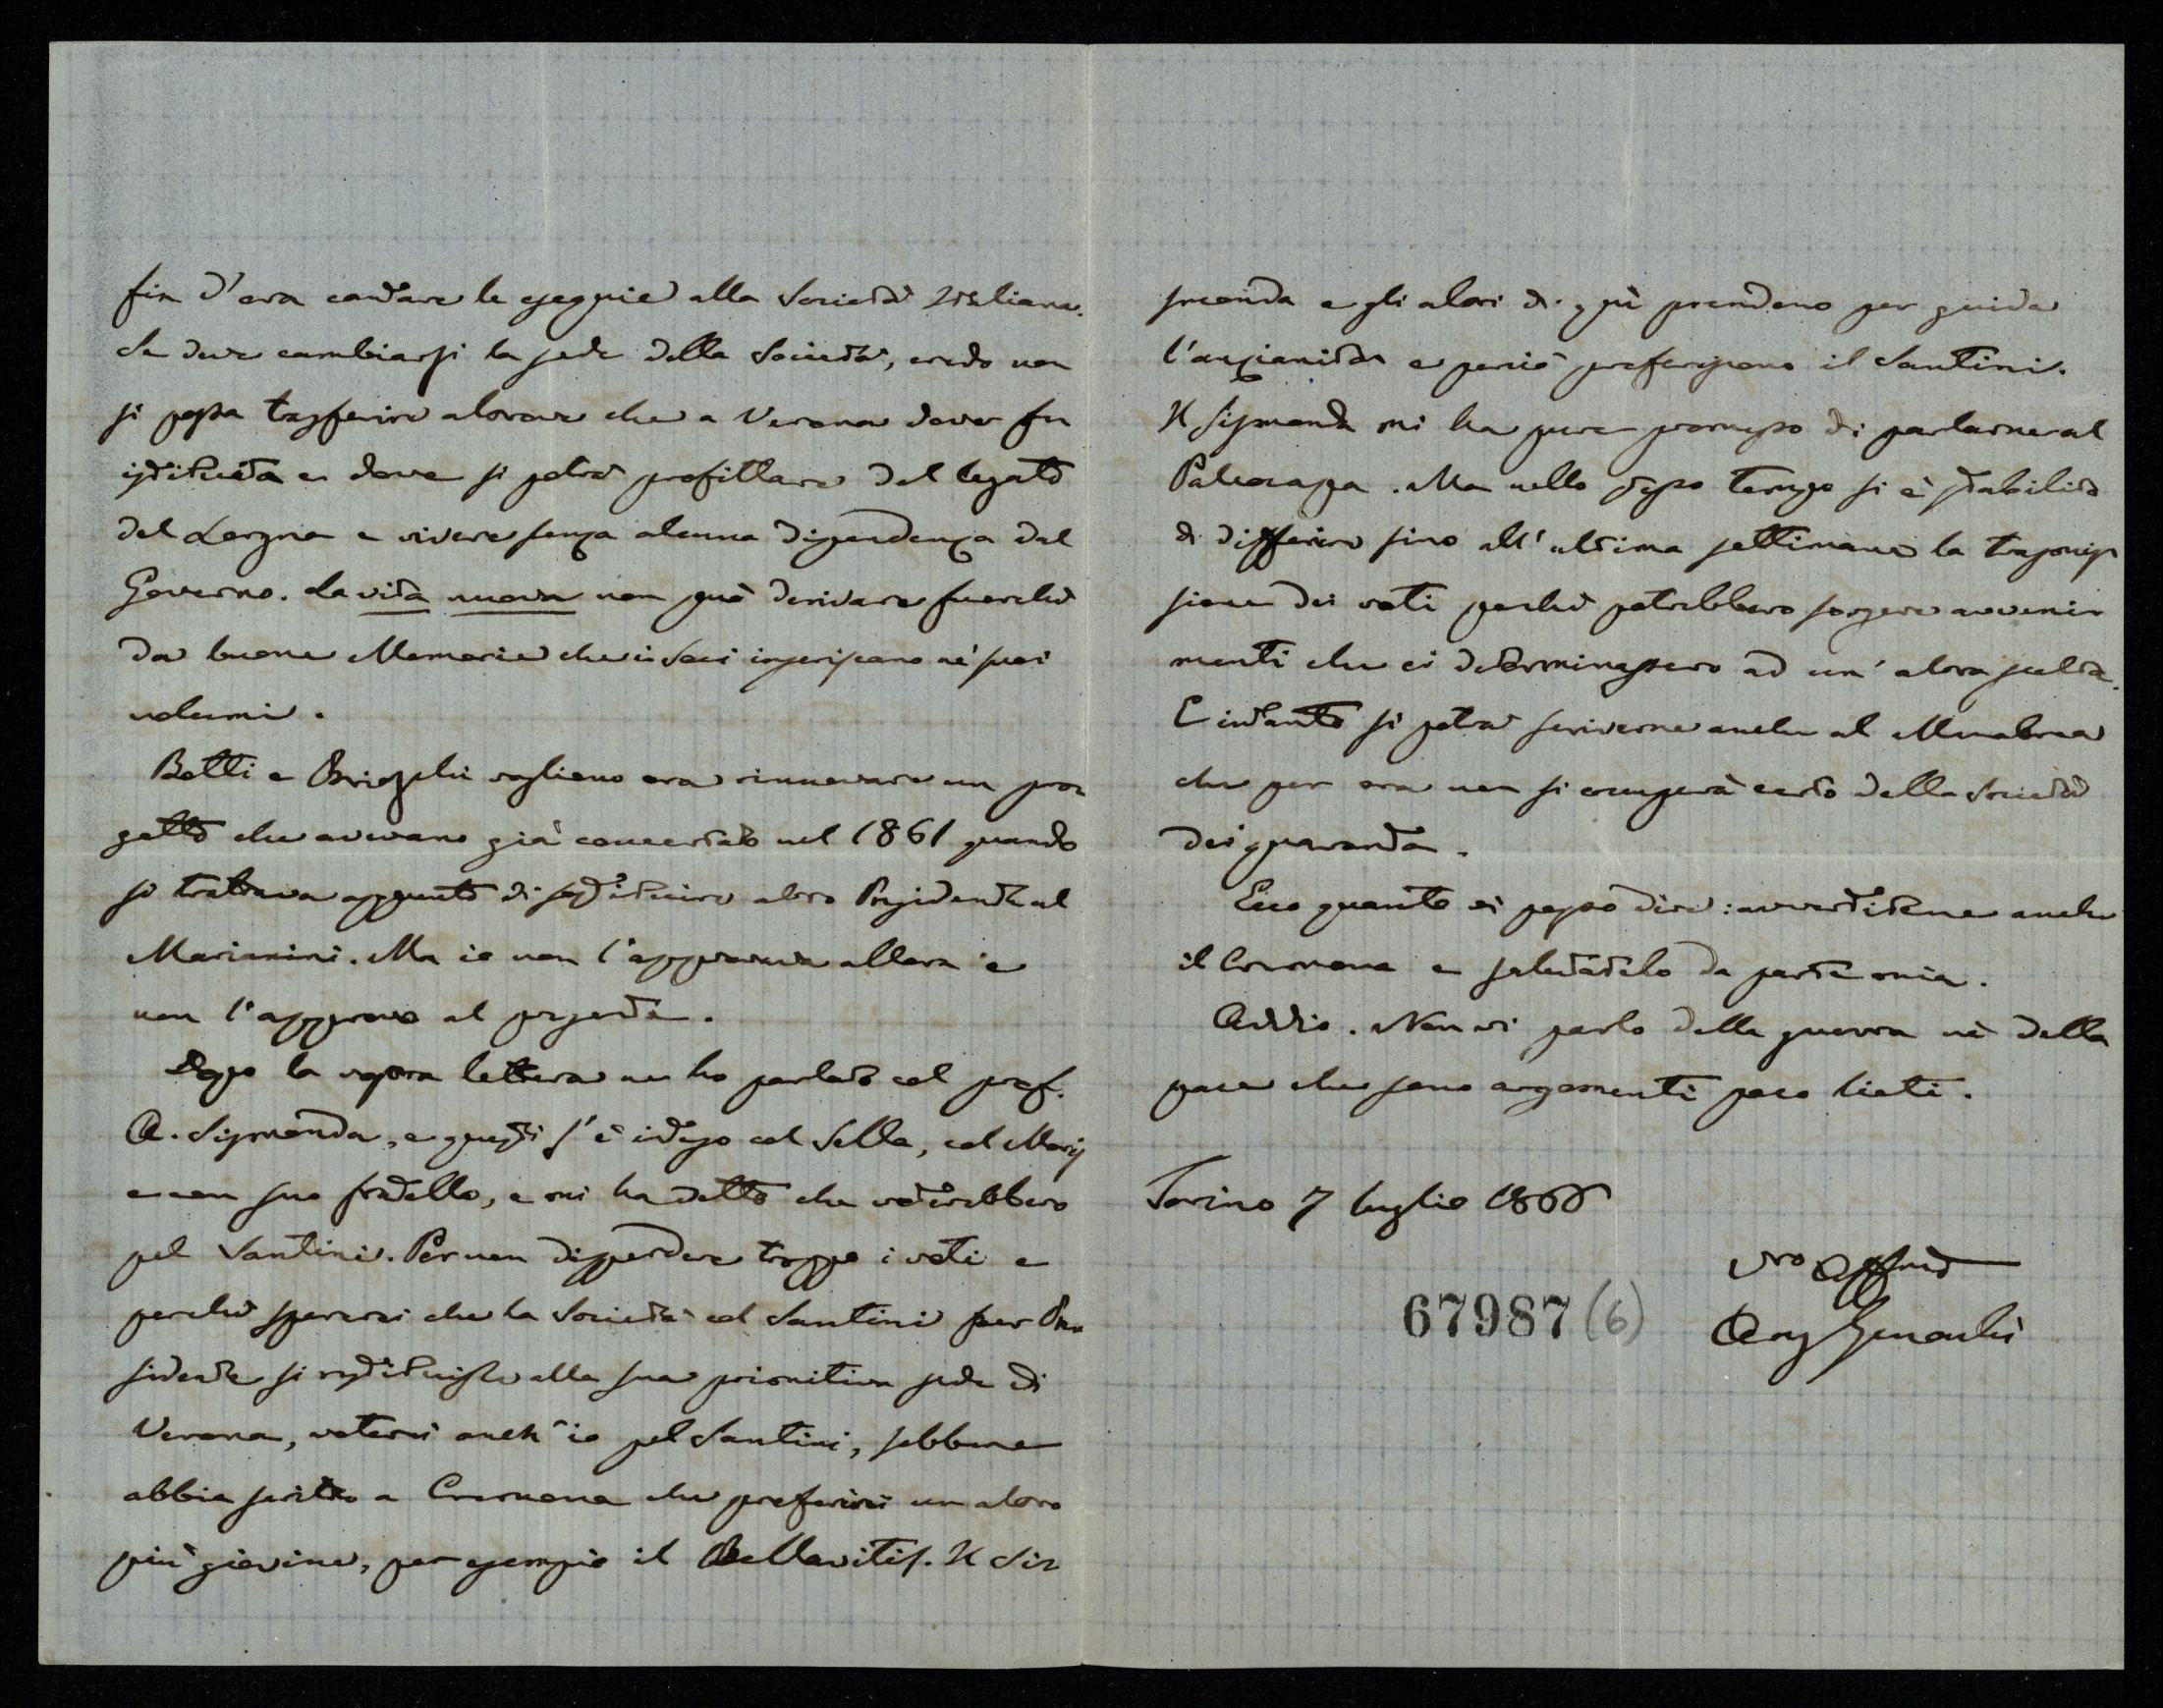 fin d'ora cantare le esequie alla Società Italiana.
Se deve cambiarsi la sede della Società, credo non
si possa trasferire altrove che a Verona dove fu
istituita e dove si potrà profittare del legato
del Lorgna e vivere senza alcuna dipendenza dal
Governo. La vita nuova non può derivare fuorchè
da buone Memorie che i Soci inseriscano ne' suoi
volumi.
Betti e Brioschi vogliono ora rinnovare un pro-
getto che avevano già concertato nel 1861 quando
si trattava appunto di sostituire altro Presidente al
Marianini. Ma io non l'approvava allora e
non l'approvo al presente.
Dopo la vostra lettera ne ho parlato col prof.
A. Sismonda, e questi s'è inteso col Sella, col Moris
e con suo fratello, e mi ha detto che voterebbero
pel Santini. Per non disperdere troppo i voti e
perchè spererei che la Società col Santini per Pre-
sidente si restituisse alla sua primitiva sede di
Verona, voterei anch'io pel Santini, sebbene
abbia scritto a Cremona che preferirei un altro
più giovine, per esempio il Bellavitis. Il Sis-
smonda e gli altri di quì prendono per guida
l'anzianità e perciò preferiscono il Santini.
Il Sismonda mi ha pure promesso di parlarne al
Paleocapa. Ma nello stesso tempo si è stabilito
di differire fino all'ultima settimana la trasmis-
sione dei voti perchè potrebbero sorgere avveni-
menti che ci determinassero ad un'altra scelta.
E intanto si potrà scriverne anche al Menabrea
che per ora non si occuperà certo della Società
dei quaranta.
Ecco quanto vi posso dire: avvertitene anche
il Cremona e salutatelo da parte mia.
Addio. Non vi parlo della guerra nè della
pace che sono argomenti poco lieti.
Torino 7 luglio 1866
Vro Affmo
Ang Genocchi
67987 (6)